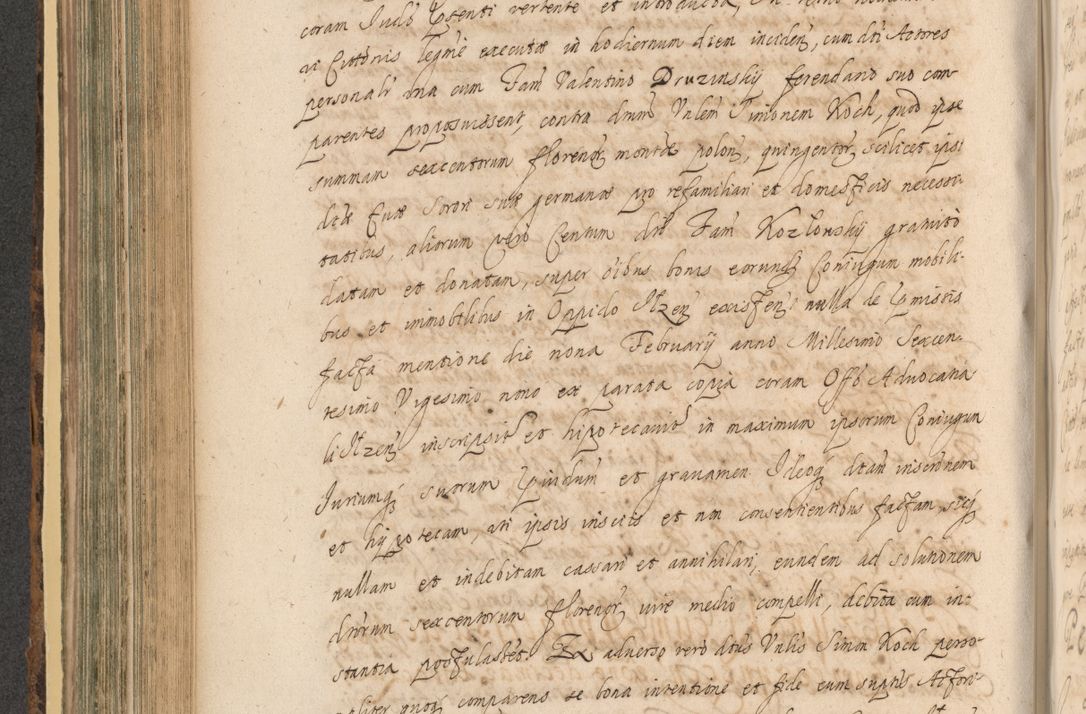 coram Judo Pñsenti vertente et introducta,
vi Citãtõnis legmẽ executæ in hodiernum diem inciden, cum dti Actores
personalr̃ una cum Fam Valentino Druzinskij ferendario suo com-
parentes proposuissent, contra dnum Vnlem Simonem Koch, quod ipse
summam sexcentorum florenoɋ montæ polon, quingentoɋ scilicet ipsi
dtæ suæ Sorori suæ germanæ pro refamiliari et domesticis necessi-
tatibus, aliorum vero Centum dto Fam Kozlowskij gratuitò
datam et donatam, super oibus bonis eorunɋ Coniugum mobili-
bus et immobilibus in Oppido Ilzen existen, nulla de pmissis
facta mentione die nona Februarij anno Millesimo Sexcen-
tesimo Vigesimo nono ex parata copia coram Offo Advocatia-
li Ilzen inscripsit et hipotecavit in maximum ipsorum Coniugum
Juriumɋ suorum pjudium et gravamen Ideoɋ dtam inscronem
et hypotecam, uti ipsis insciis et non consentientibus factam, sicɋ
nullam et indebitam cassari et annihilari, eundem ad solutionem
dnorum sexcentorum florenoɋ iure medio compelli, debita cum in-
stantia postulasset. Ex adverso verò dtus Vnlis Simon Koch perso-
naliter quoɋ comparens se bona intentione et fide cum suptis Actori-